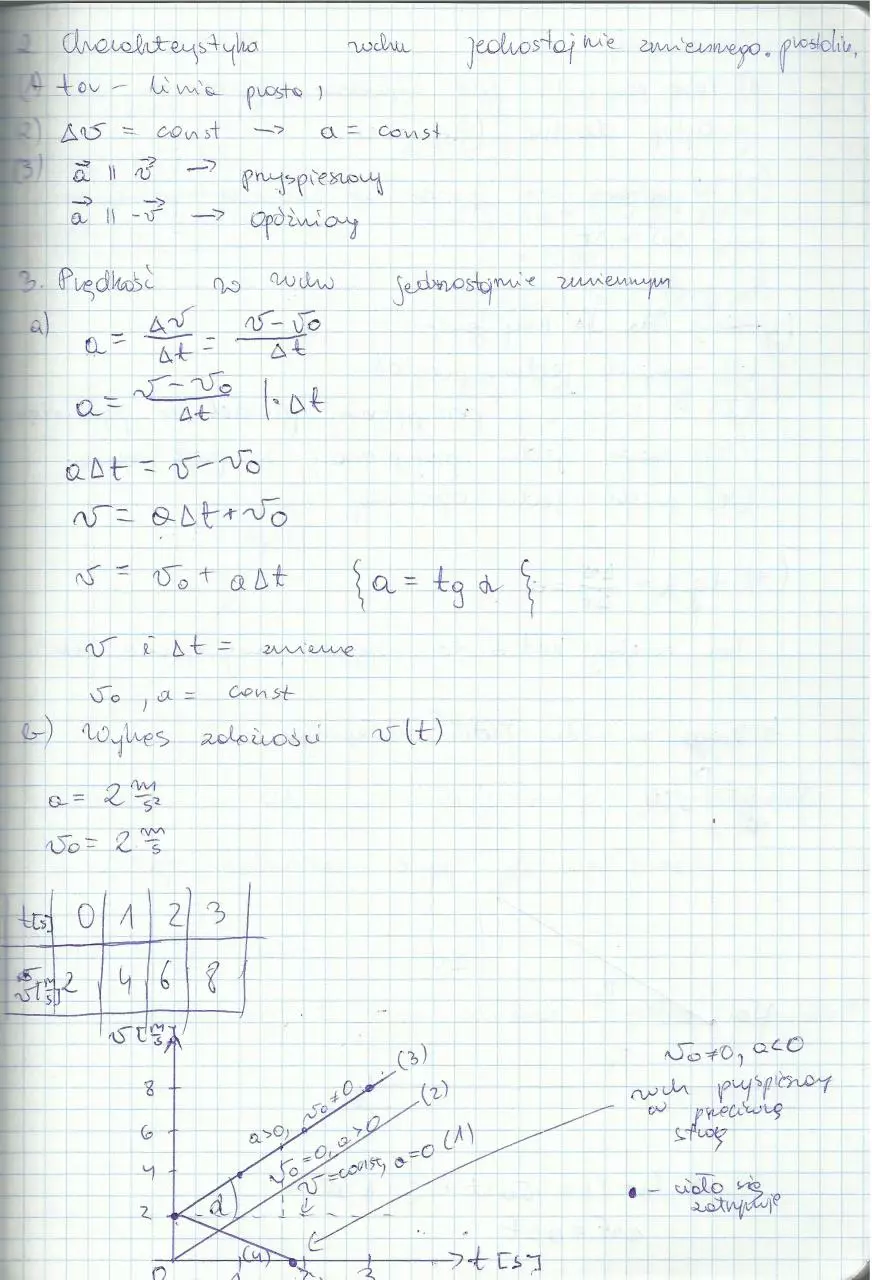 2 Charakterystyka ruchu jednostajnie zmiennego. prostolin.
(1) tor – linia prosta,
2) Δv = const → a = const
(3) a⃗ || v⃗ → przyspieszony
a⃗ || -v⃗ → opóźniony
3. Prędkość w ruchu jednostajnie zmiennym
a) a = Δv/Δt = v-v₀/Δt
a = v-v₀/Δt |·Δt
aΔt = v-v₀
v = aΔt+v₀
v = v₀ + aΔt {a = tg α}
v i Δt = zmienne
v₀, a = const
b) Wykres zależności v(t)
a = 2 m/s²
v₀ = 2 m/s
t[s] 0 1 2 3
v[m/s] 2 4 6 8
v[m/s]
8
6
4
2
0 1 2 3 t[s]
a>0, v₀≠0 (3)
v₀=0, a>0 (2)
v=const, a=0 (1)
α
(4)
v₀≠0, a<0
ruch przyspieszony
w przeciwną
stronę
• – ciało się
zatrzymuje